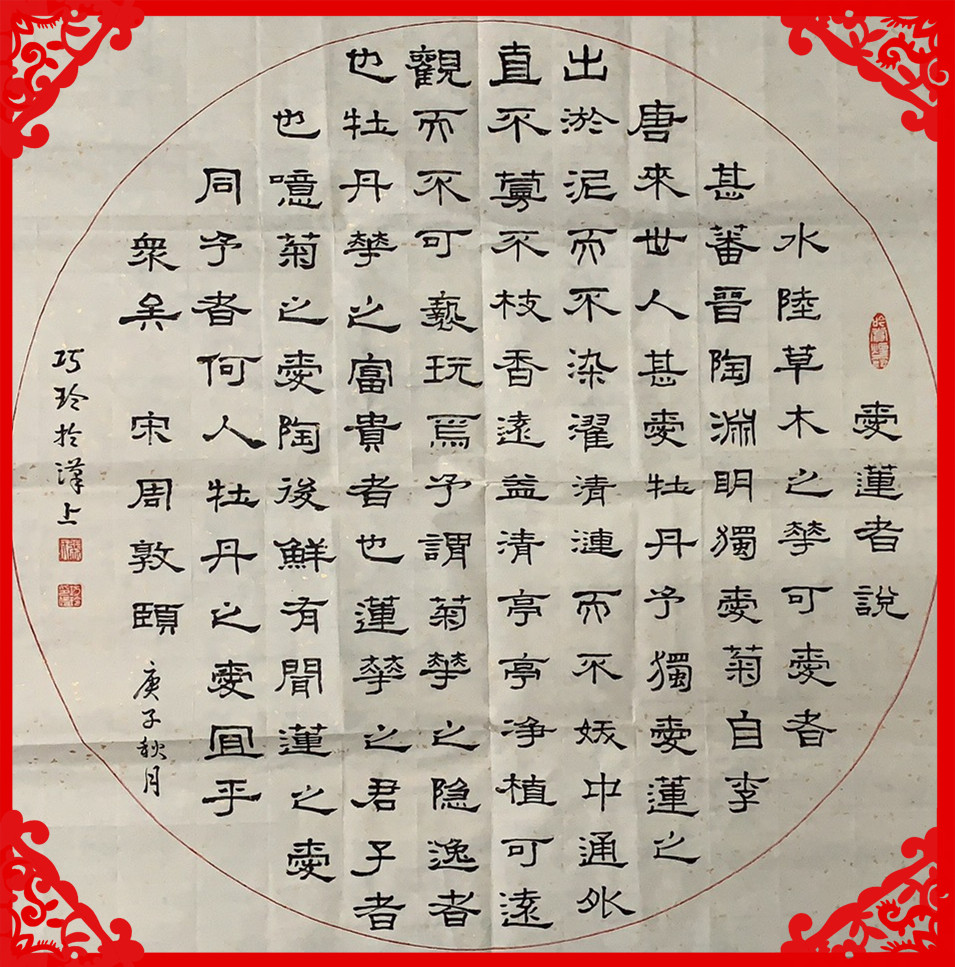 愛蓮者說
水陸草木之華可愛者
甚蕃晉陶淵明獨愛菊自李
唐來世人甚愛牡丹予獨愛蓮之
出淤泥而不染濯清漣而不妖中通外
直不蔓不枝香遠益清亭亭净植可遠
觀而不可褻玩焉予謂菊華之隐逸者
也牡丹華之富貴者也蓮華之君子者
也噫菊之愛陶後鮮有聞蓮之愛
同予者何人牡丹之愛宜乎
衆矣 宋周敦頤 庚子秋月
巧玲於漢上